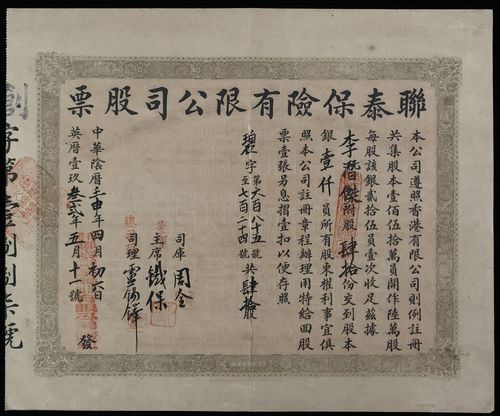 聯泰保險有限公司股票
本公司遵照香港有限公司則例註冊
共集股本壹佰伍拾萬員開作陸萬股
每股該銀貳拾伍員壹次收足茲據
李潛傑附股肆拾份交到股本
銀壹仟員所有股東權利事宜俱
照本公司註冊章程辦理用特給回股
票壹張另息摺壹扣以便存照
字第六百八十五號
至七百二十四號共肆拾股
司庫 周全
主席 鐵保
總司理 雲錫鐸
中華陰曆壬申年四月初六日
英曆壹玖叁弍年五月十一號
發
字第
號